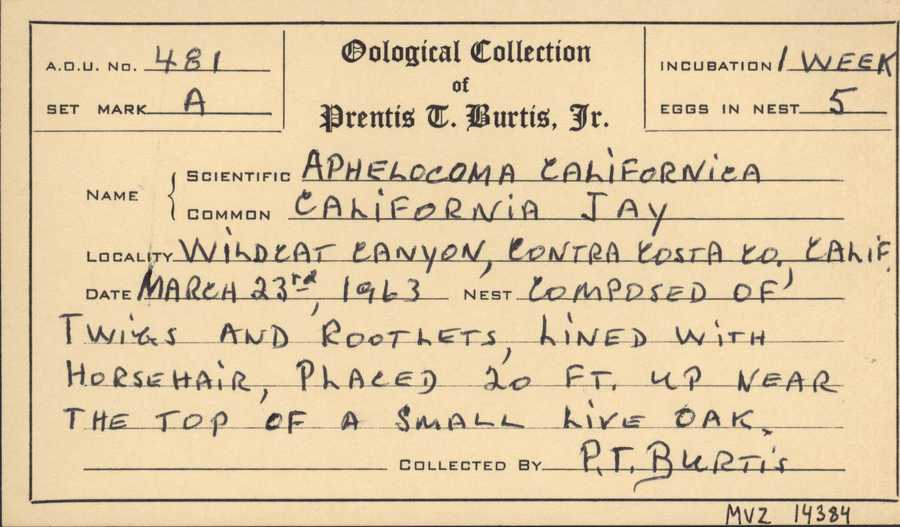 A.O.U. No. 481
SET MARK A
Oological Collection
of
Prentis T. Burtis, Jr.
INCUBATION 1 WEEK
EGGS IN NEST 5
NAME
SCIENTIFIC APHELOCOMA CALIFORNICA
COMMON CALIFORNIA JAY
LOCALITY WILDCAT CANYON, CONTRA COSTA CO, CALIF.
DATE MARCH 23rd, 1963 NEST COMPOSED OF
TWIGS AND ROOTLETS, LINED WITH
HORSEHAIR, PLACED 20 FT. UP NEAR
THE TOP OF A SMALL LIVE OAK.
COLLECTED BY P.T. BURTIS
MVZ 14384